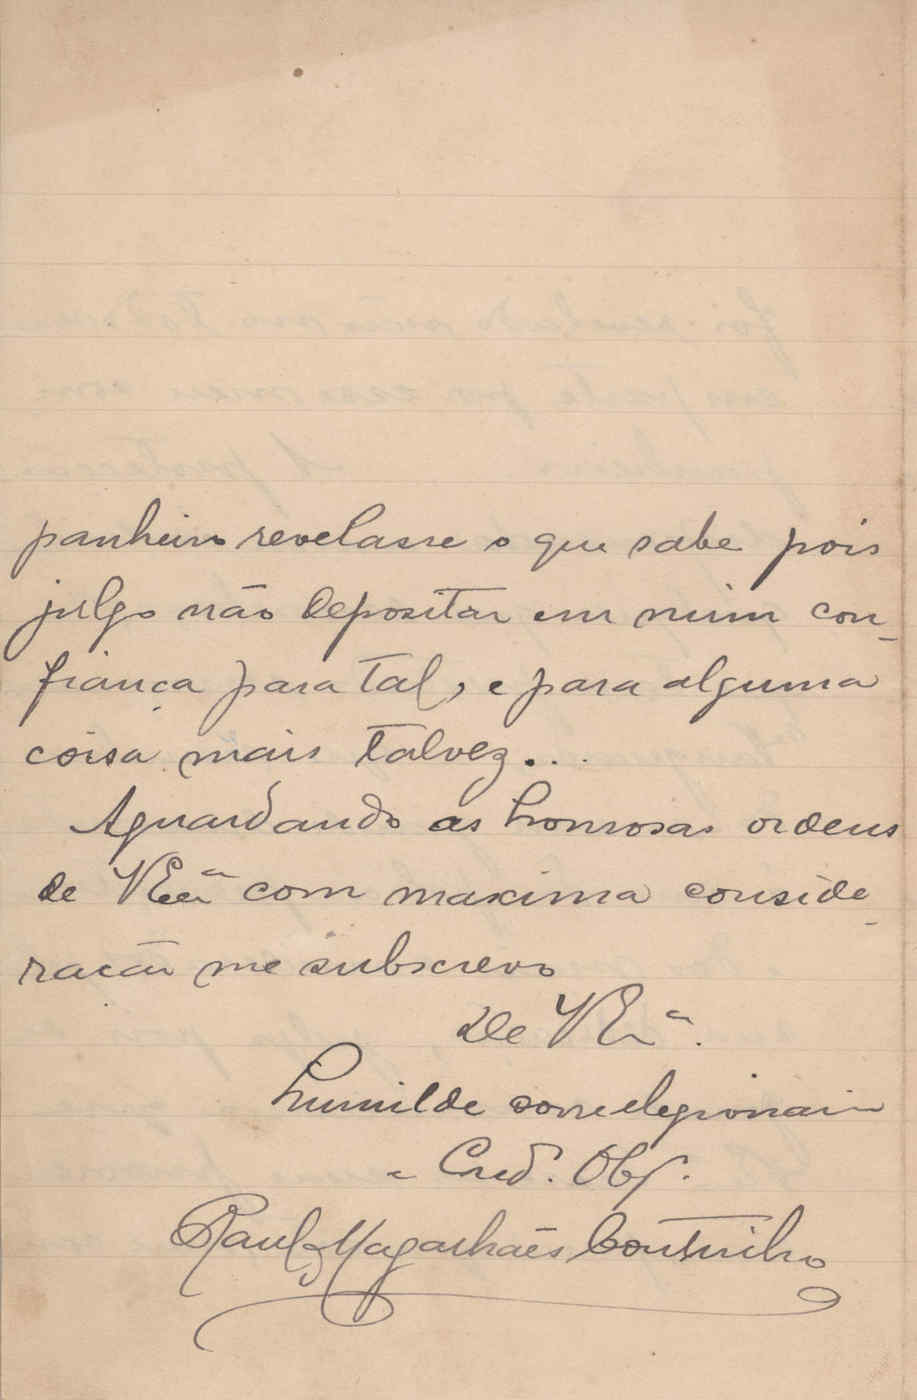 panheiro revelasse o que sabe pois
julgo não depositar em mim con-
fiança para tal, e para alguma
coisa mais talvez...
Aguardando as honrosas ordens
de VExª com maxima conside-
ração me subscrevo
De VExª.
humilde correlegionario
e Cred. Obg.
Raul Magalhães Coutinho